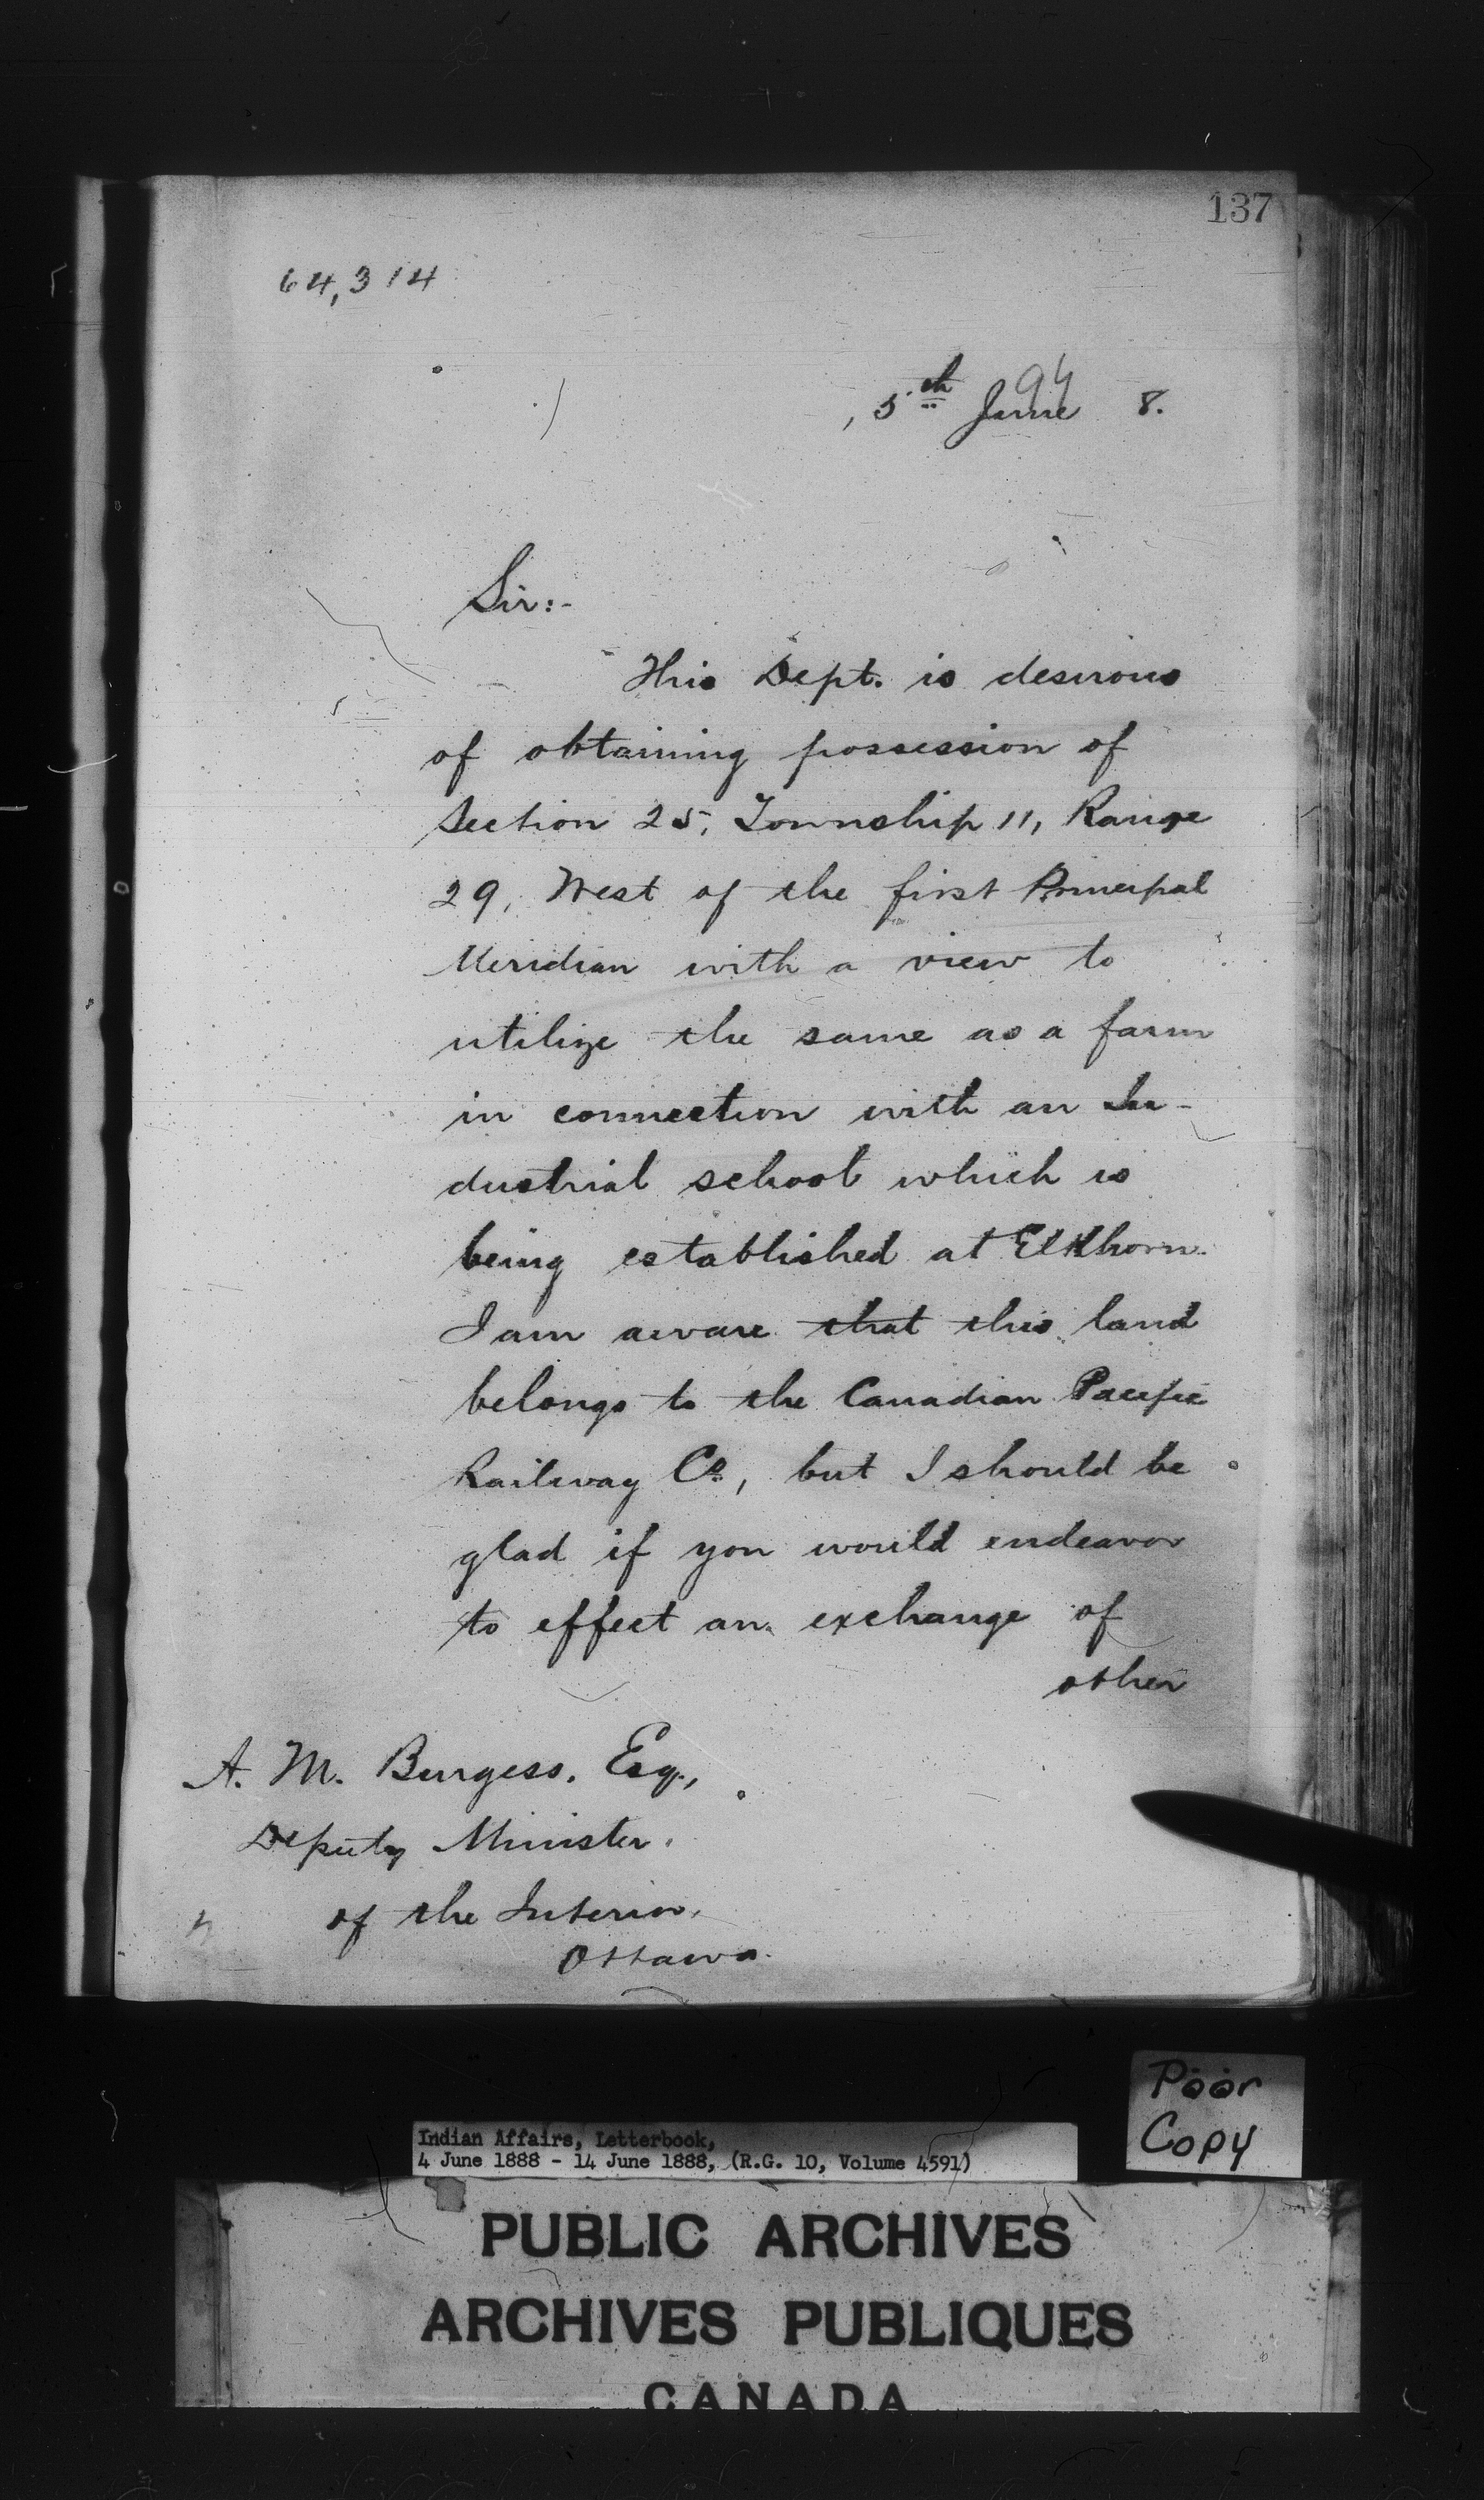 137
64,314
94
, 5th June 8.
Sir:-
This Dept. is desirous
of obtaining possession of
Section 25, Township 11, Range
29, West of the first Principal
Meridian with a view to
utilize the same as a farm
in connection with an In-
dustrial school which is
being established at Elkhorn.
I am aware that this land
belongs to the Canadian Pacific
Railway Co, but I should be
glad if you would endeavor
to effect an exchange of
other
A. M. Burgess, Esq.,
Deputy Minister,
of the Interior,
Ottawa.
Poor
Copy
Indian Affairs, Letterbook,
4 June 1888 - 14 June 1888, (R.G. 10, Volume 4591)
PUBLIC ARCHIVES
ARCHIVES PUBLIQUES
CANADA